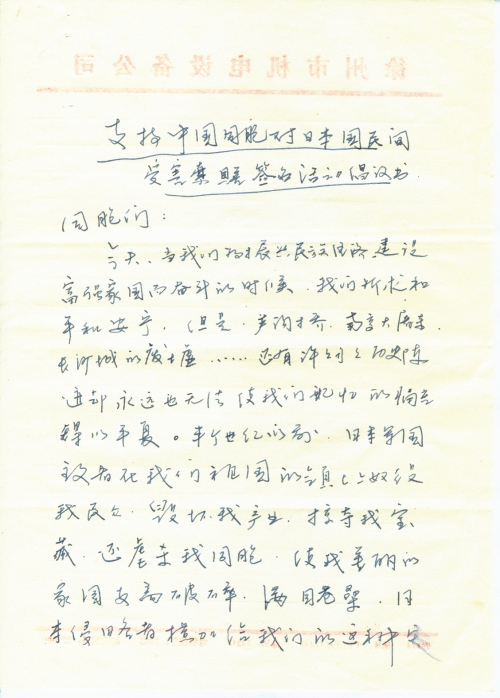 徐州市机电设备公司
支持中国同胞对日本国民间
受害索赔签名活动倡议书
同胞们：
今天，当我们为振兴民族团结建设
富强家园而奋斗的时候，我们祈求和
平和安宁，但是，芦沟桥，南京大屠杀，
长城的废墟……还有许
却永远也无法使我们记忆的
得以平复。半世纪以前，日本军国
主义者在我们祖国的领土上奴役
我民众，毁坏我产业，掠夺我宝
藏，还虐杀我同胞，使我美丽的
家园支离破碎，满目苍夷，日
本侵略者横加给我们的这种